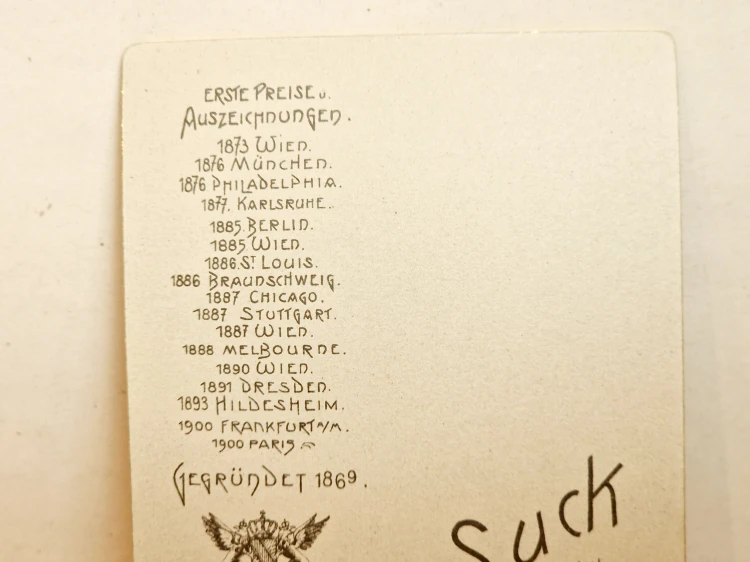 ERSTE PREISE U.
AUSZEICHNUNGEN.
1873 WIEN.
1876 MÜNCHEN.
1876 PHILADELPHIA.
1877. KARLSRUHE.
1885 BERLIN.
1885 WIEN.
1886 ST LOUIS.
1886 BRAUNSCHWEIG.
1887 CHICAGO.
1887 STUTTGART.
1887 WIEN.
1888 MELBOURNE.
1890 WIEN.
1891 DRESDEN.
1893 HILDESHEIM.
1900 FRANKFURT A/M.
1900 PARIS
GEGRÜNDET 1869.
Suck